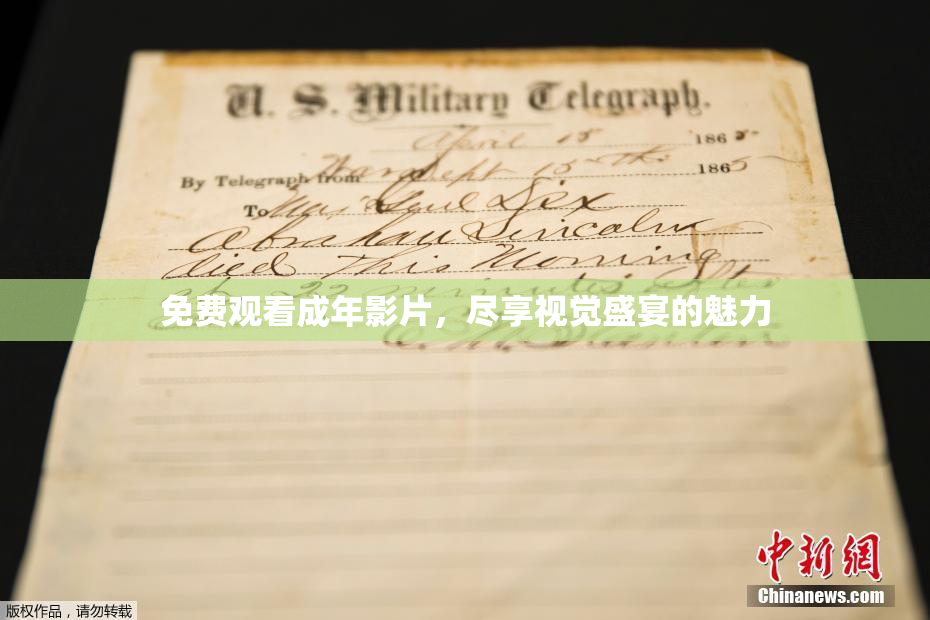 U. S. Military Telegraph.
April 15 1865
By Telegraph from War Dept 15th 1865
To Maj Genl Dix
Abraham Lincoln
died This Morning
at 22 minutes after
免费观看成年影片，尽享视觉盛宴的魅力
Stanton
中新网
Chinanews.com
版权作品，请勿转载